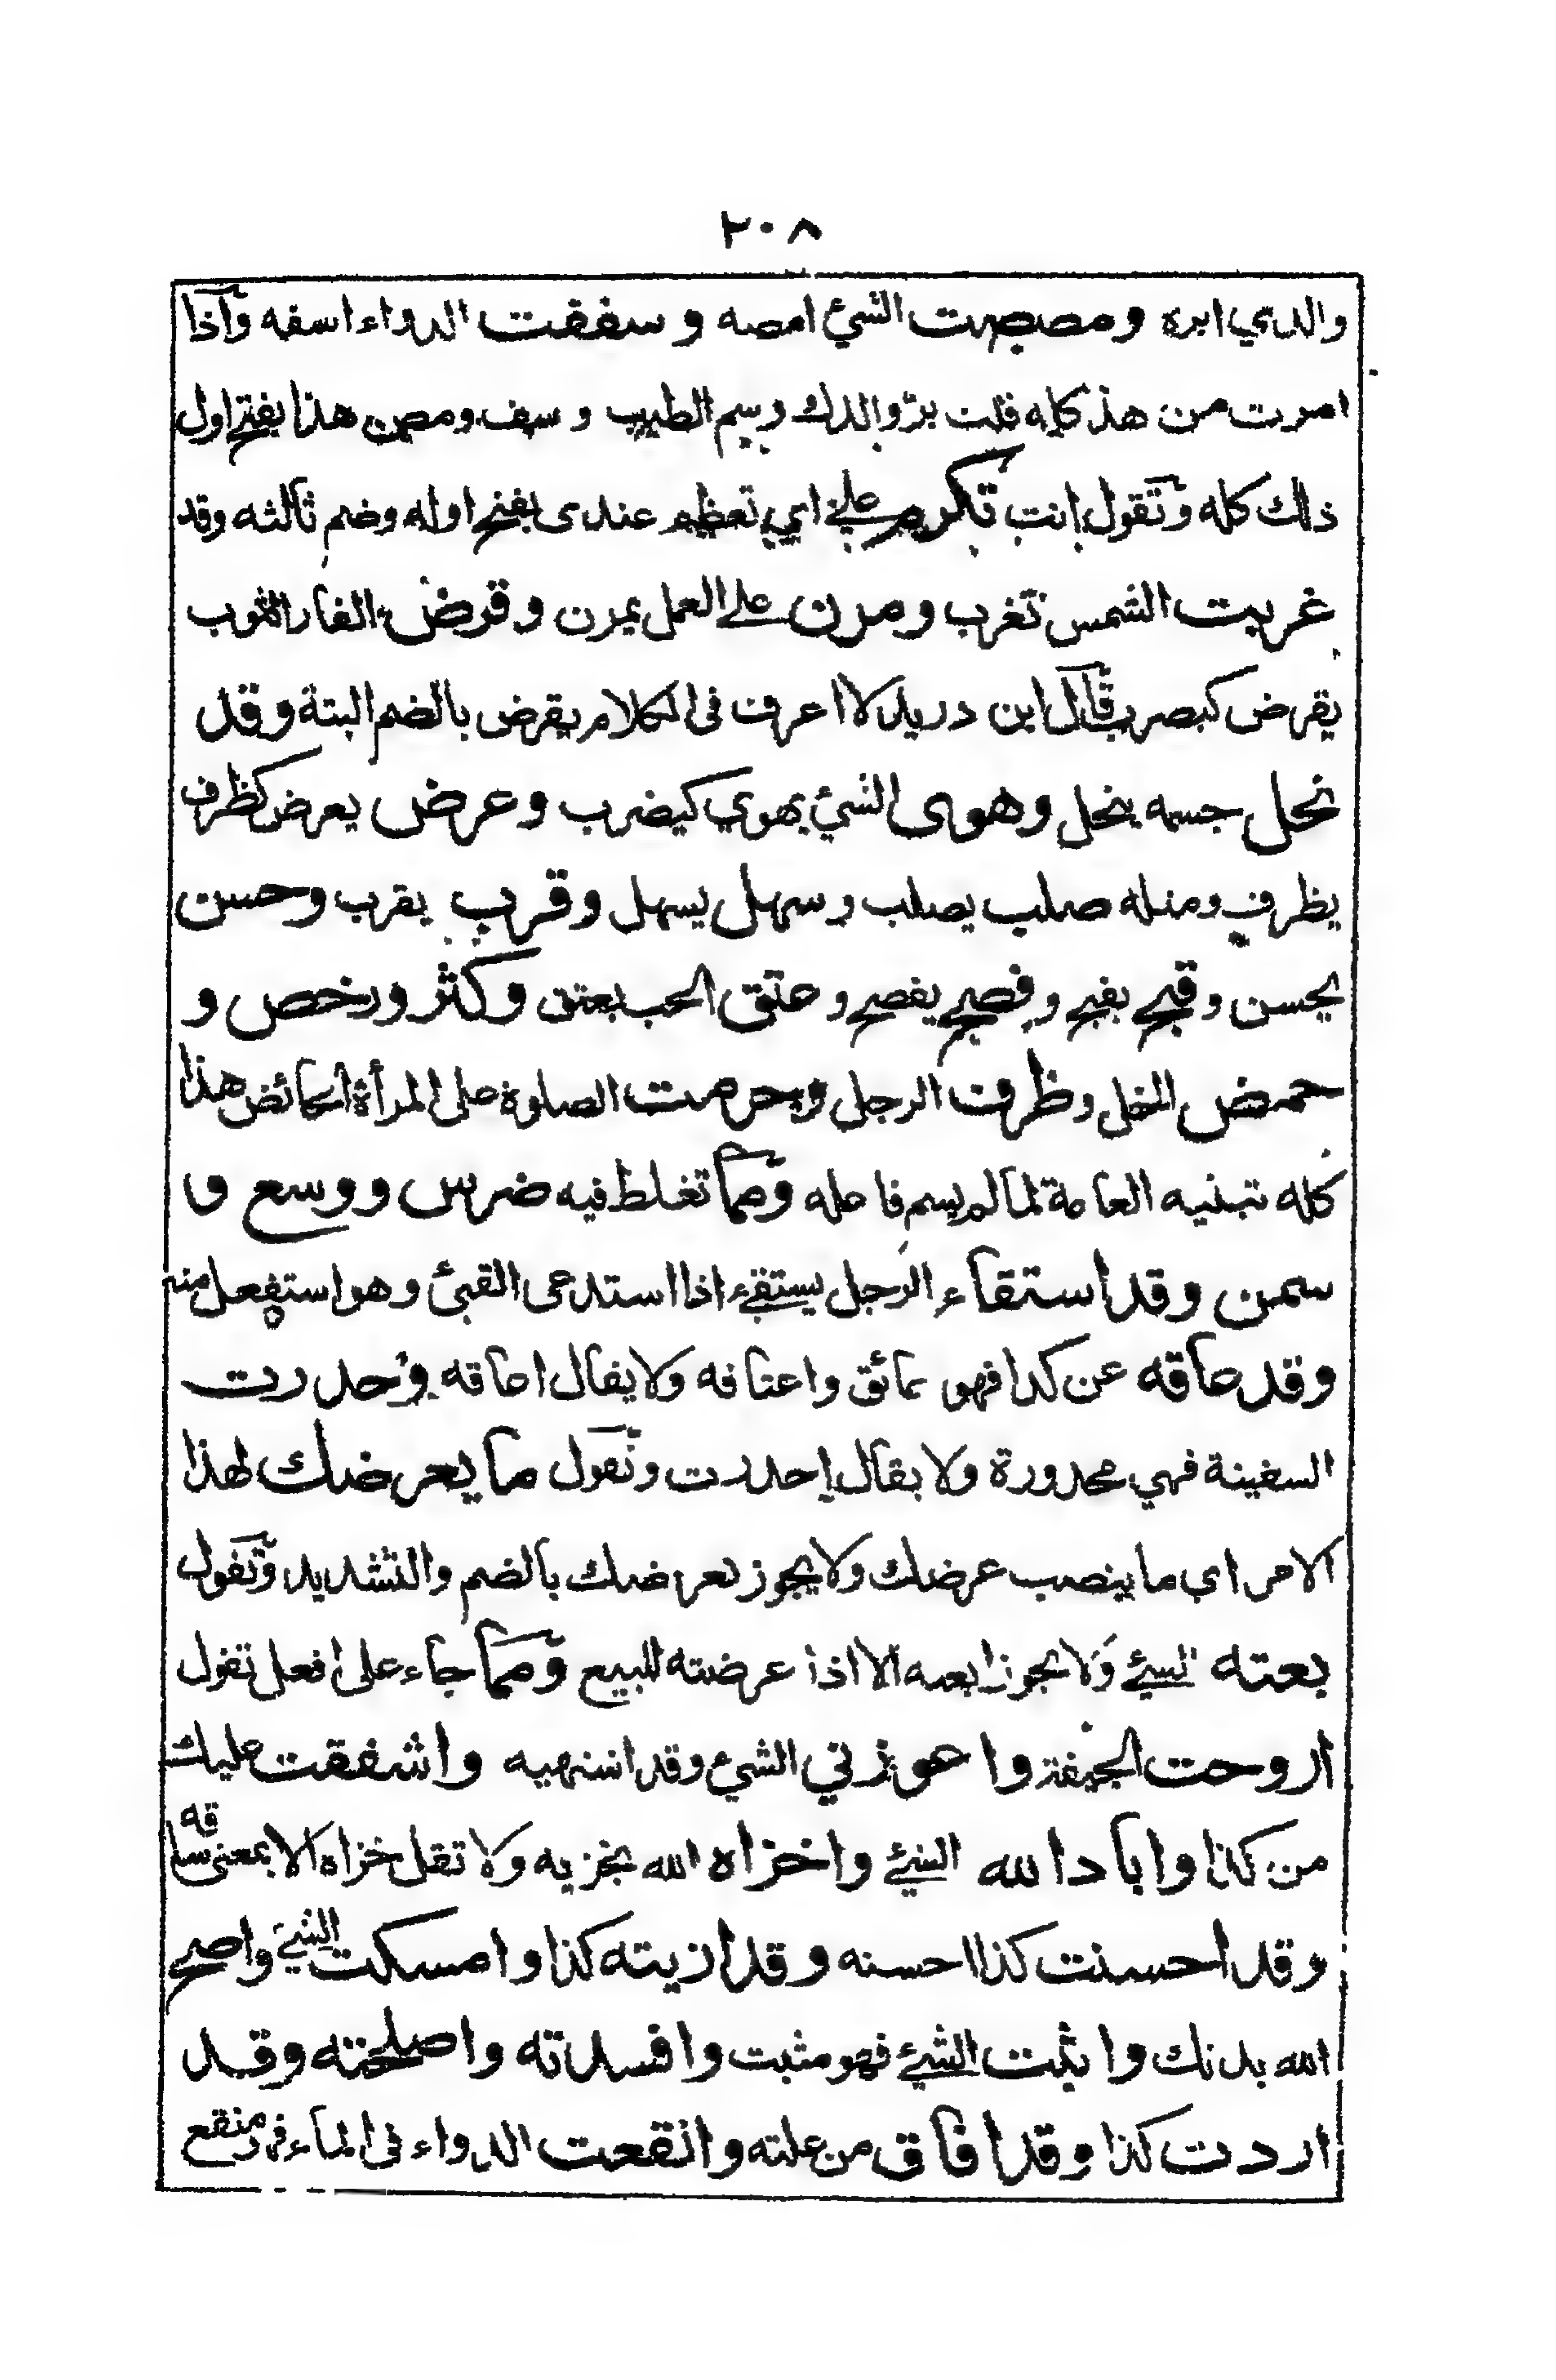 ٢٠٨
والدي ابره ومصصت الشئ امصه وسففت الدواء اسفه واذا
امرت من هذ كله قلت بر والدك وسم الطيب وسف ومص هذا بفتح اول
ذلك كله وتقول انت تكرم علي اي تعظم عندى بفتح اوله وضم ثالثه وقد
غربت الشمس تغرب ومرن على العمل يمرن وقرض الفار الثوب
يقرض كيضرب قال ابن دريد لا اعرف فى الكلام يقرض بالضم البتة وقد
نحل جسمه ينحل وهوى الشئ يهوي كيضرب وعرض يعرض كظرف
يظرف ومثله صلب يصلب وسهل يسهل وقرب يقرب وحسن
يحسن وقبح يقبح وفصح يفصح وعتق الحب يعتق وكثر ورخص و
حمض الخل وظرف الرجل وحرمت الصلوة على المرأة الحائض هذا
كله تبنيه العامة لما لم يسم فاعله ومما تغلط فيه ضرس ووسع و
سمن وقد استقاء الرجل يستقئ اذا استدعى القيئ وهو استفعل منه
وقد عاقه عن كذا فهو عائق واعتاقه ولا يقال اعاقه وحدرت
السفينة فهي محدورة ولا يقال احدرت وتقول ما يعرضك لهذا
الامر اي ما ينصب عرضك ولا يجوز يعرضك بالضم والتشديد وتقول
بعته الشئ ولا يجوز ابعته الا اذا عرضته للبيع ومما جاء على افعل تقول
اروحت الجيفة واعوزني الشئ وقد اشنهيه واشفقت عليك
من كذا واباد الله الشئ واخزاه الله يخزيه ولا تقل خزاه الا بمعنى ساقه
وقد احسنت كذا احسنه وقد ازيته كذا وامسكت الشئ واصح
الله بدنك واثبت الشئ فهو مثبت وافسدته واصلحته وقد
اردت كذا وقد افاق من علته وانقعت الدواء فى الماء فهو منقع